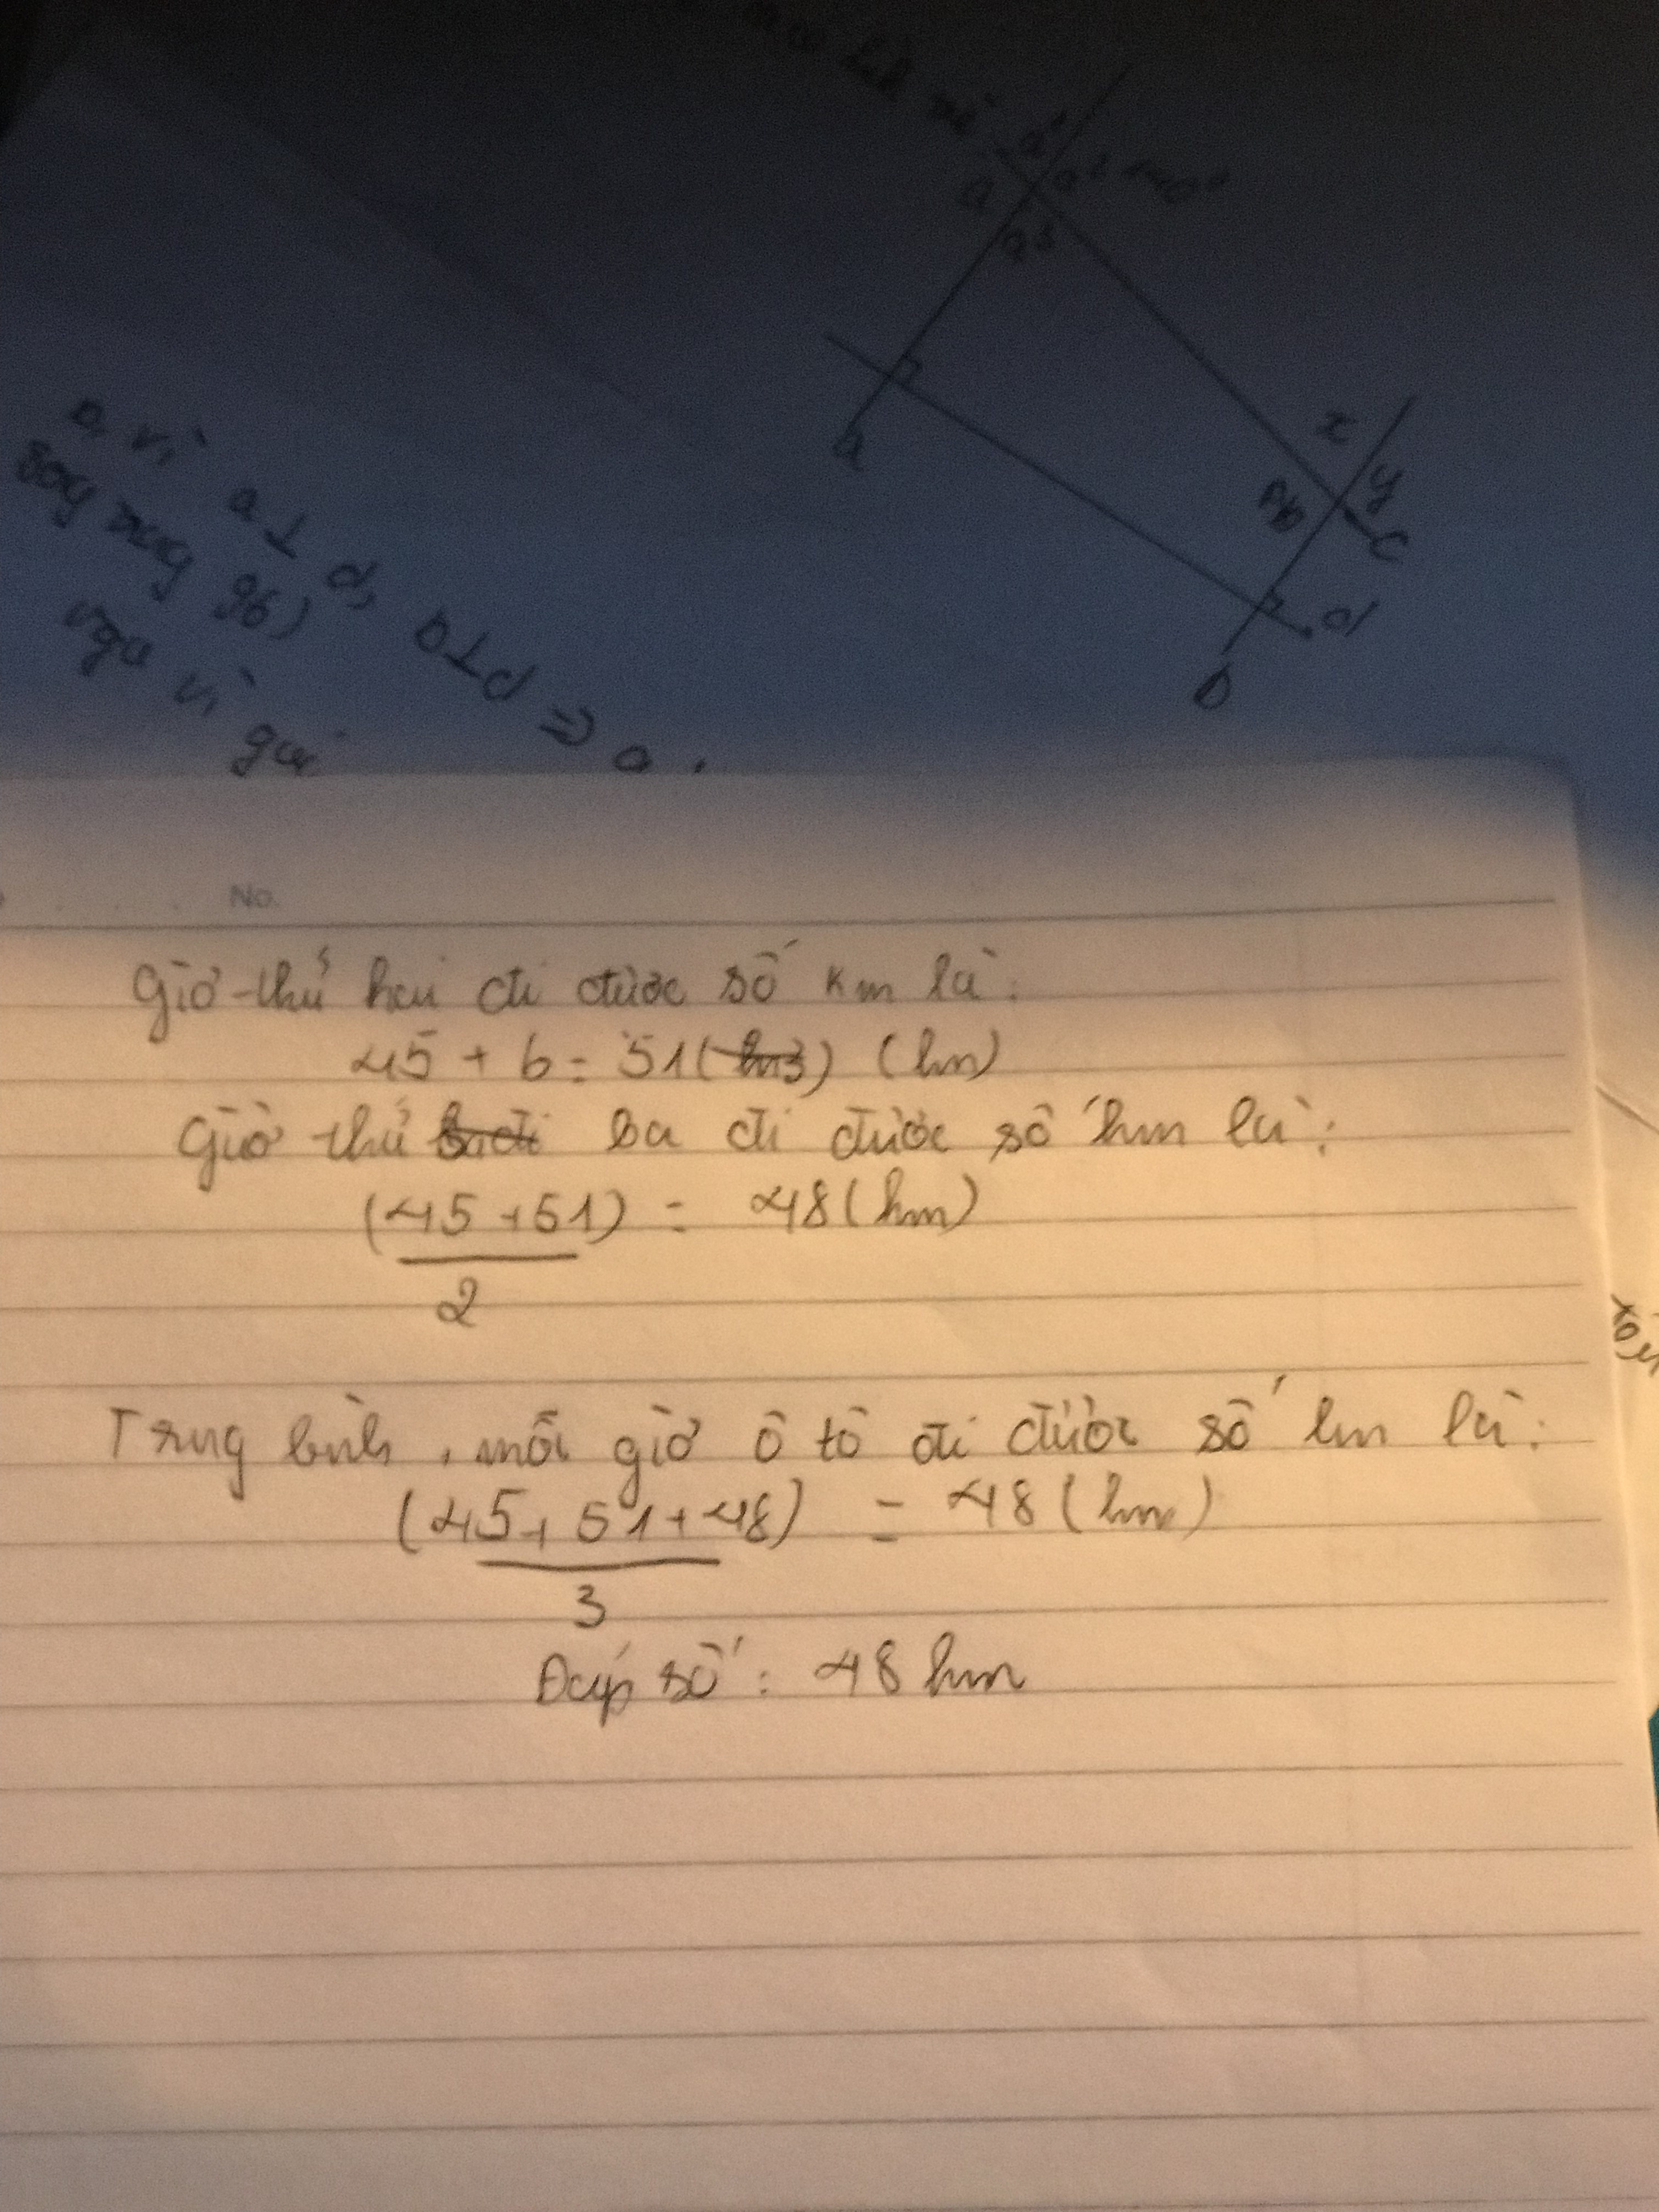 a, vì a⊥d, b⊥d => a
song song
vga vì
a
x
y
c
d
b
No.
Giờ thứ hai đi được số km là:
45 + 6 = 51 (km)
Giờ thứ ba đi được số km là:
(45 + 51) = 48 (km)
2
Trung bình, mỗi giờ ô tô đi được số km là:
(45 + 51 + 48) = 48 (km)
3
Đáp số: 48 km